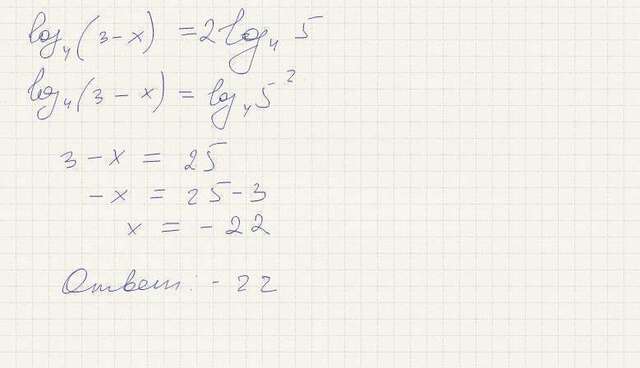 log₄(3-x) = 2log₄ 5
log₄(3-x) = log₄5²
3-x = 25
-x = 25-3
x = -22
Ответ: -22